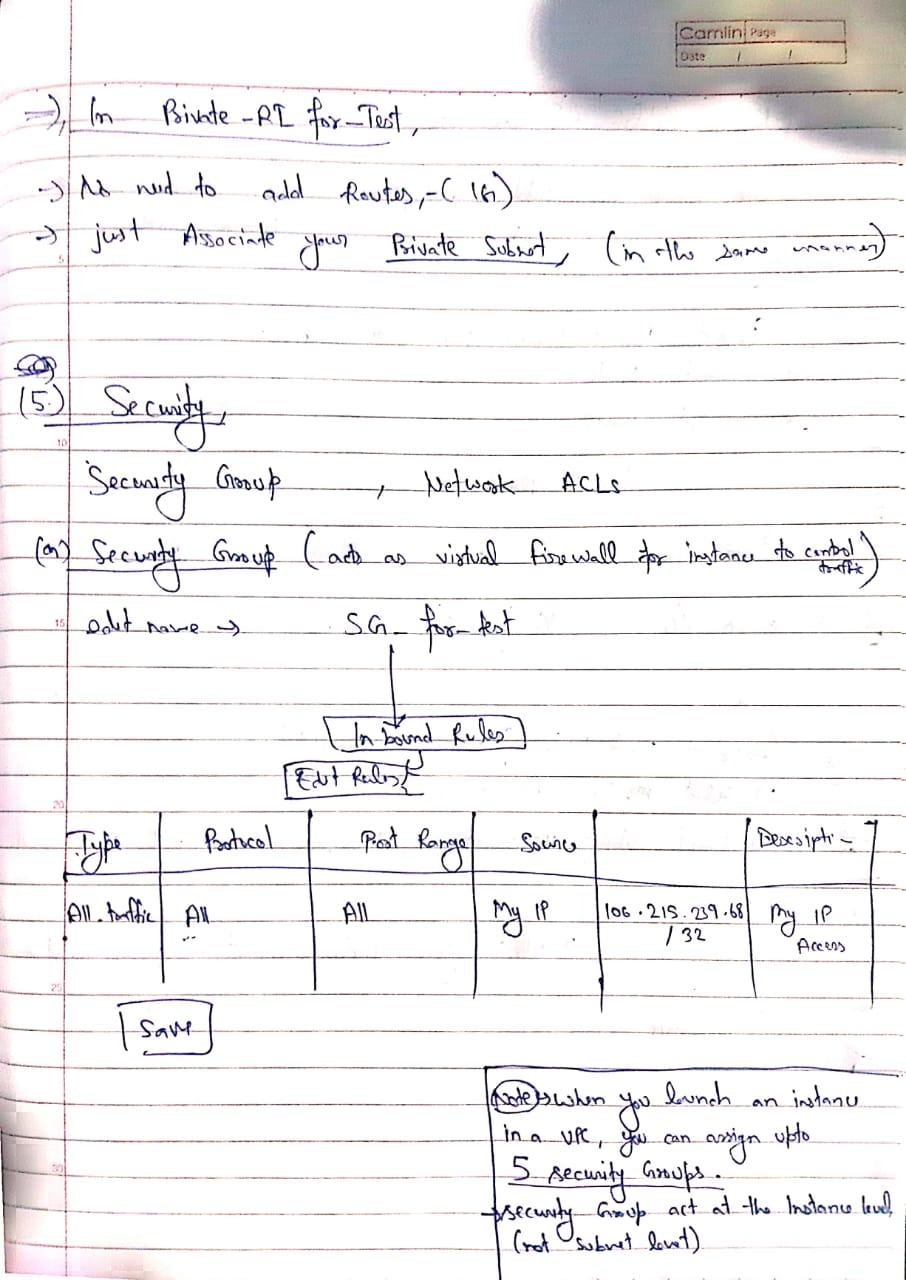 Camlin Page
Date / /
=> In Private-RT for-Test,
-> No need to add Routes,-( IG)
-> just Associate your Private Subnet, (in the same manner)
5
(5.) Security,
10
Security Group , Network ACLs
(a) Security Group (acts as virtual firewall for instance to control traffic)
15
edit name -> SG_for-test
In bound Rules
Edit Rules
20
Type Protocol Port Range Source Descripti-
All.traffic All All My IP 106.215.239.68 My IP
/32 Access
25
Save
Note when you launch an instance
in a VPC, you can assign upto
30
5 security Groups.
-> security Group act at the Instance level,
(not subnet level)